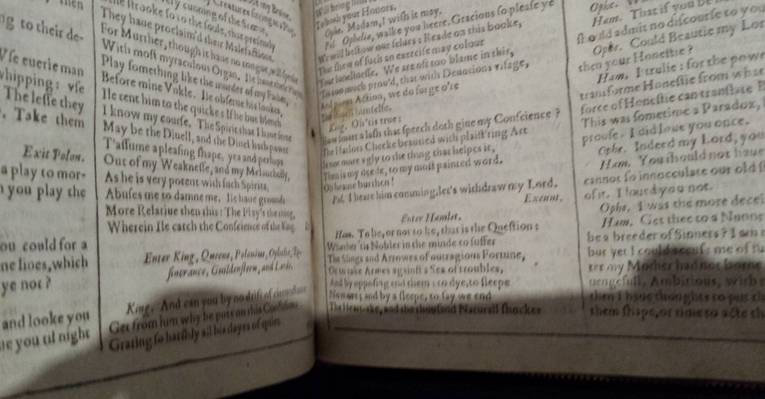 ng to their de-
Vse euerie man
whipping: vse
The lesse they
. Take them
Exit Polon.
a play to mor-
n you play the
ou could for a
ne lines, which
ye not?
and looke you
ue you til night
ry cunning of the Scene,
Bin strooke so to the soule, that presently
They haue proclaim'd their Malefactions.
For Murther, though it haue no tongue, will speake
With most myraculous Organ. Ile haue these
Play something like the murder of my Father,
Before mine Vnkle. Ile obserue his lookes,
Ile tent him to the quicke: If he but blench
I know my course. The Spirit that I haue seene
May be the Diuell, and the Diuel hath power
T'assume a pleasing shape, yea and perhaps
Out of my Weaknesse, and my Melancholly,
As he is very potent with such Spirits,
Abuses me to damne me. Ile haue grounds
More Relatiue then this: The Play's the thing,
Wherein Ile catch the Conscience of the King.
Enter King, Queene, Polonius, Ophelia, Ro-
sincrance, Guildenstern, and Lords.
King. And can you by no drift of circumstance
Get from him why he puts on this Confusion:
Grating so harshly all his dayes of quiet
Ophe. Madam, I wish it may.
Pol. Ophelia, walke you heere. Gracious so please ye
We will bestow our selues: Reade on this booke,
That shew of such an exercise may colour
Your lonelinesse. We are oft too blame in this,
'Tis too much prou'd, that with Deuotions visage,
And Action, we do surge o're
King. Oh 'tis true:
How smart a lash that speech doth giue my Conscience?
The Harlots Cheeke beautied with plaist'ring Art
Is not more vgly to the thing that helpes it,
Then is my deede, to my most painted word.
Oh heauie burthen!
Pol. I heare him comming, let's withdraw my Lord.
Exeunt.
Enter Hamlet.
Ham. To be, or not to be, that is the Question:
Whether 'tis Nobler in the minde to suffer
The Slings and Arrowes of outragious Fortune,
Or to take Armes against a Sea of troubles,
And by opposing end them: to dye, to sleepe
No more; and by a sleepe, to say we end
The Heart-ake, and the thousand Naturall shockes
Ophe.
Ham. That if you be
should admit no discourse to you
Ophe. Could Beautie my Lor
then your Honestie?
Ham. I trulie: for the powe
transforme Honestie from what
force of Honestie can translate B
This was sometime a Paradox,
proofe. I did loue you once.
Ophe. Indeed my Lord, you
Ham. You should not haue
cannot so innocculate our old
of it. I loued you not.
Ophe. I was the more decei
Ham. Get thee to a Nunne
be a breeder of Sinners? I am
but yet I could accuse me of
ter my Mother had not borne
uengefull, Ambitious, with
then I haue thoughts to put th
them shape, or time to acte th